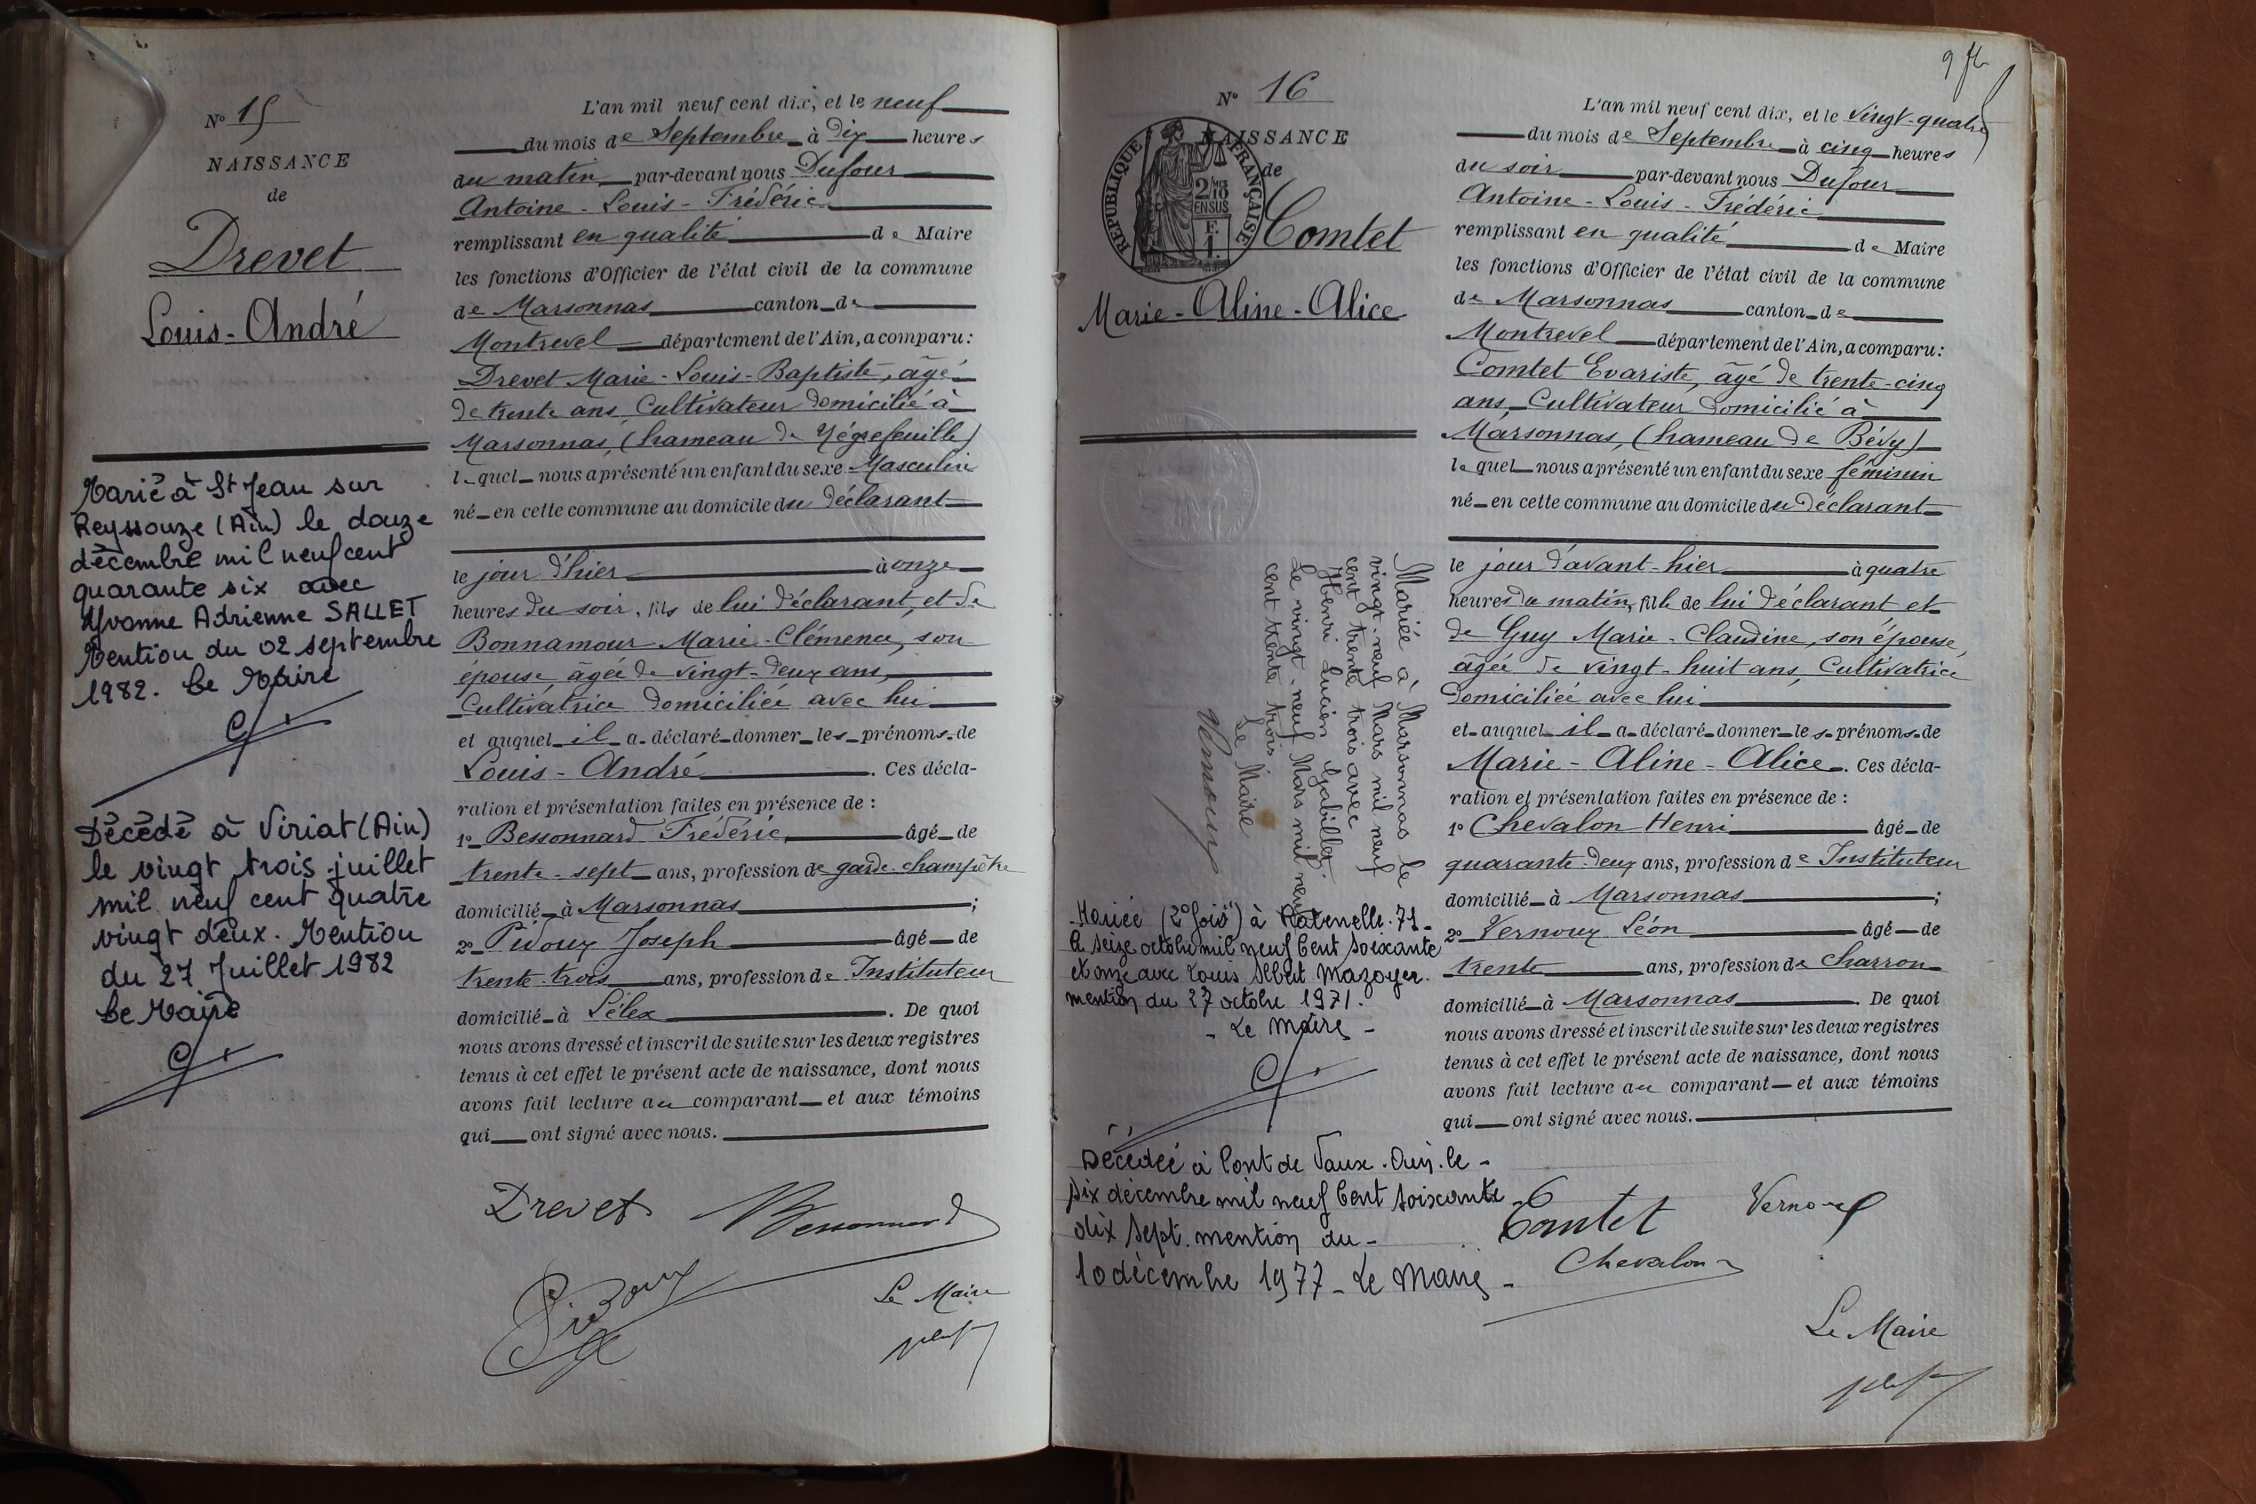 N° 15
NAISSANCE
de
Drevet
Louis-André
L'an mil neuf cent dix, et le neuf
du mois de Septembre à Dix heures
du matin par-devant nous Dufour
Antoine-Louis-Frédéric
remplissant en qualité de Maire
les fonctions d'Officier de l'état civil de la commune
de Marsonnas canton de
Montrevel département de l'Ain, a comparu:
Drevet Marie-Louis-Baptiste, âgé
de trente ans, Cultivateur domicilié à
Marsonnas, (hameau de
lequel nous a présenté un enfant du sexe Masculin
né en cette commune au domicile du déclarant
le jour d'hier à onze
heures du soir, fils de lui déclarant, et de
Bonnamour Marie-Clémence, son
épouse âgée de vingt-deux ans,
Cultivatrice domiciliée avec lui
et auquel il a déclaré donner les prénoms de
Louis-André. Ces décla-
ration et présentation faites en présence de :
1° Bessonnard Frédéric, âgé de
trente-sept ans, profession de garde-champêtre
domicilié à Marsonnas ;
2° Pidoux Joseph âgé de
trente-trois ans, profession de Instituteur
domicilié à Lélex. De quoi
nous avons dressé et inscrit de suite sur les deux registres
tenus à cet effet le présent acte de naissance, dont nous
avons fait lecture au comparant et aux témoins
qui ont signé avec nous.
Drevet Bessonnard
Pidoux
Le Maire
Marié à St Jean sur
Reyssouze (Ain) le douze
décembre mil neuf cent
quarante six avec
Yvonne Adrienne SALLET
Mention du 02 septembre
1982. Le Maire
Décédé à Viriat (Ain)
le vingt trois juillet
mil neuf cent quatre
vingt deux. Mention
du 27 Juillet 1982
Le Maire
N° 16
NAISSANCE
de
REPUBLIQUE FRANÇAISE
2/10
EN SUS
F.
1.
Comtet
Marie-Aline-Alice
L'an mil neuf cent dix, et le vingt-quatre
du mois de Septembre à cinq heures
du soir par-devant nous Dufour
Antoine-Louis-Frédéric
remplissant en qualité de Maire
les fonctions d'Officier de l'état civil de la commune
de Marsonnas canton de
Montrevel département de l'Ain, a comparu:
Comtet Evariste, âgé de trente-cinq
ans, Cultivateur domicilié à
Marsonnas, (hameau de Bévy)
lequel nous a présenté un enfant du sexe féminin
né en cette commune au domicile du déclarant
le jour d'avant-hier à quatre
heures du matin, fille de lui déclarant et
de Guy Marie-Claudine, son épouse,
âgée de vingt-huit ans, Cultivatrice
domiciliée avec lui
et auquel il a déclaré donner les prénoms de
Marie-Aline-Alice. Ces décla-
ration et présentation faites en présence de :
1° Chevalon Henri âgé de
quarante-deux ans, profession de Instituteur
domicilié à Marsonnas ;
2° Vernoux Léon âgé de
trente ans, profession de Charron
domicilié à Marsonnas. De quoi
nous avons dressé et inscrit de suite sur les deux registres
tenus à cet effet le présent acte de naissance, dont nous
avons fait lecture au comparant et aux témoins
qui ont signé avec nous.
Comtet Vernoux
Chevalon
Le Maire
Mariée à Marsonnas le
vingt-neuf Mars mil neuf
cent trente trois avec
Henri Lucien Gabillet.
Le vingt-neuf Mars mil neuf
cent trente trois
Le Maire
Vernoux
Mariée (2° fois) à Ratenelle. 71-
le seize octobre mil neuf Cent soixante
et onze avec Louis Albert Mazoyer.
mention du 27 octobre 1971.
- Le Maire -
Décédée à Pont de Vaux. Ain. le -
six décembre mil neuf Cent soixante
dix sept. mention du -
10 décembre 1977 - Le Maire -